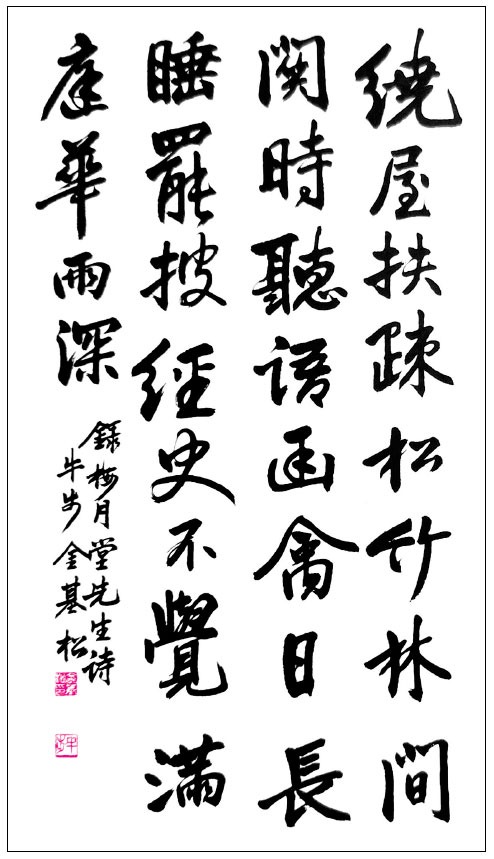 繞屋扶疎松竹林間
関時聽語幽禽日長
睡罷披經史不覺滿
庭華雨深
錄梅月堂先生詩
牛步金基松